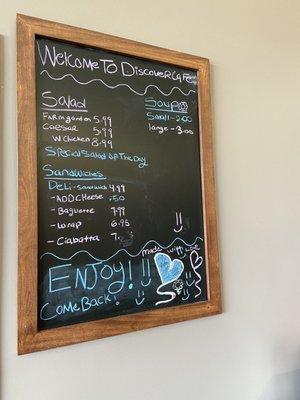 Welcome To Discover Cafe
Salad
Farmgarden 5.99
Caesar 5.99
W Chicken 8.99
Special Salad of The Day
Soup
Small - 2.00
large - 3.00
Sandwiches
Deli-Sandwich 4.99
- ADD Cheese .50
- Baguette 7.99
- Wrap 6.95
- Ciabatta 7.
made with love
ENJOY!
Come Back!